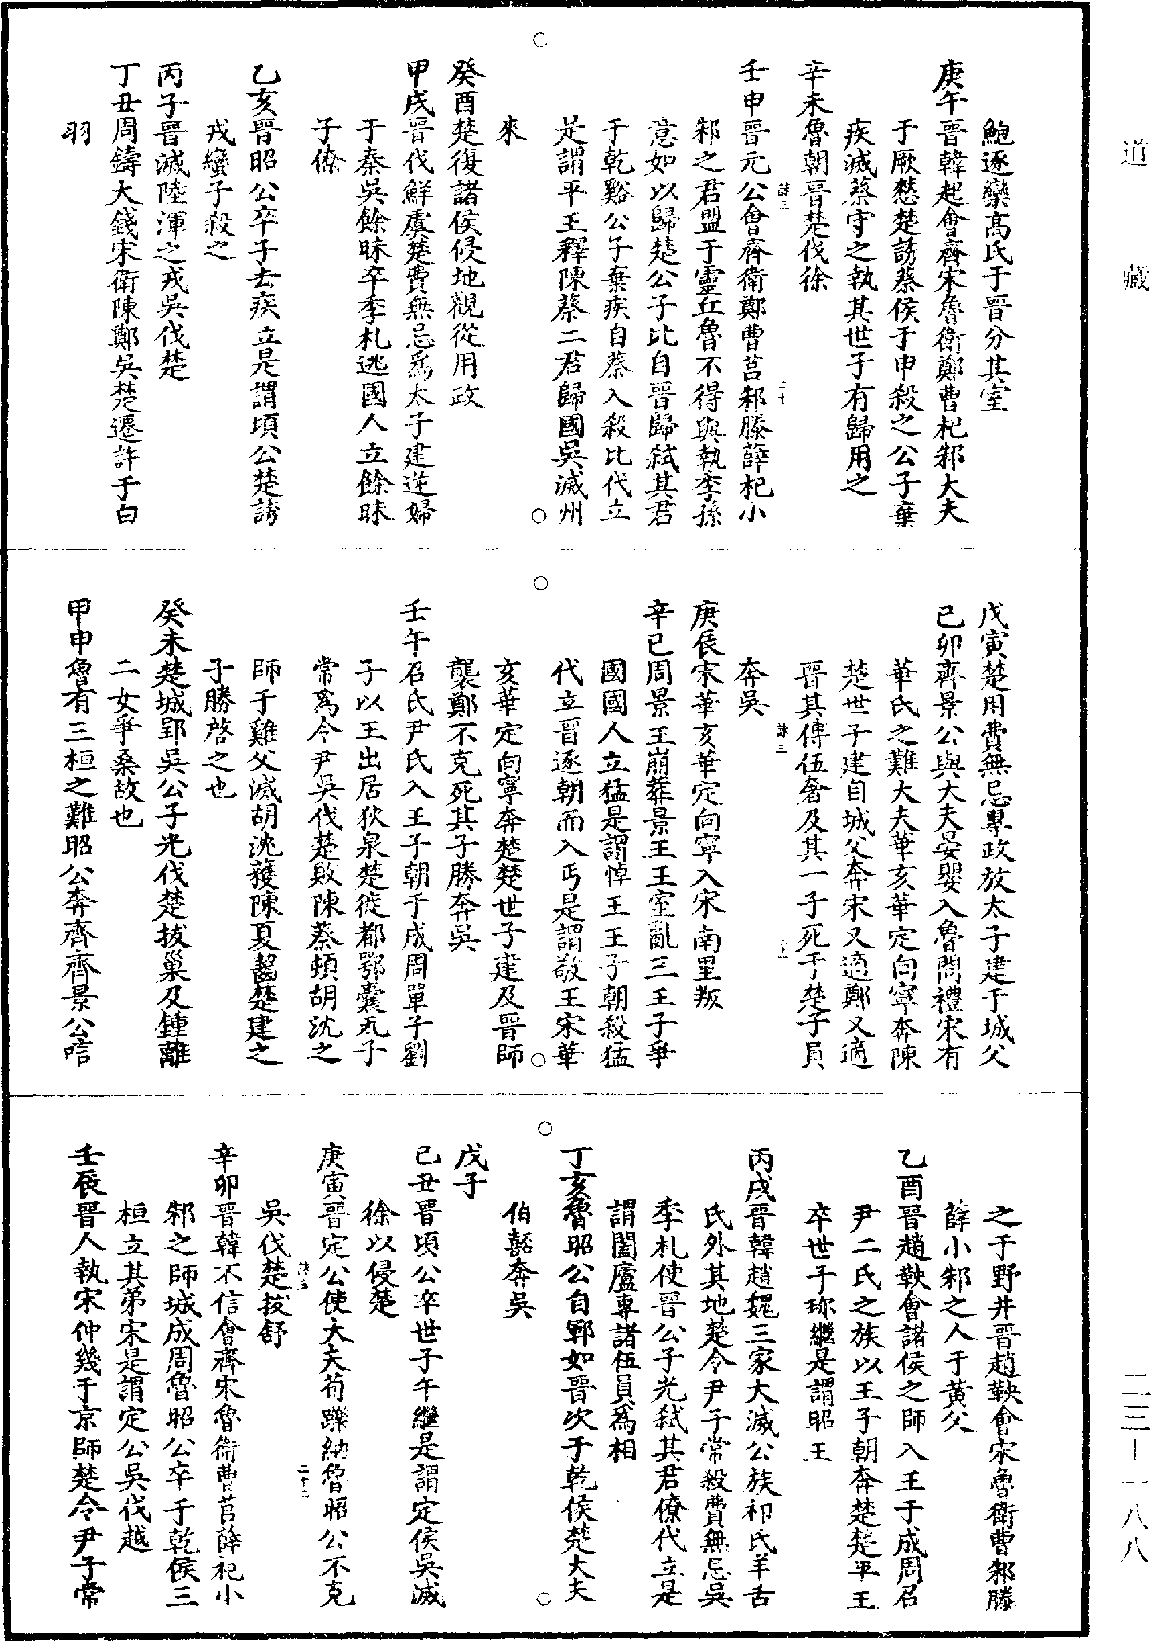 道藏
鮑逐欒高氏于晉分其室
庚午晉韓起會齊宋魯衛鄭曹杞邾大夫
于厥憖楚誘蔡侯于申殺之公子棄
疾滅蔡守之執其世子有歸用之
辛未魯朝晉楚伐徐
壬申晉元公會齊衛鄭曹莒邾滕薛杞小
邾之君盟于靈丘魯不得與執季孫
意如以歸楚公子比自晉歸弑其君
于乾谿公子棄疾自蔡入殺比代立
是謂平王釋陳蔡二君歸國吳滅州
來
癸酉楚復諸侯侵地觀從用政
甲戌晉伐鮮虞楚費無忌爲太子建逆婦
于秦吳餘昧卒季札逃國人立餘昧
子僚
乙亥晉昭公卒子去疾立是謂頃公楚誘
戎蠻子殺之
丙子晉滅陸渾之戎吳伐楚
丁丑周鑄大錢宋衛陳鄭吳楚遷許于白
羽
戊寅楚用費無忌專政放太子建于城父
己卯齊景公與大夫晏嬰入魯問禮宋有
華氏之難大夫華亥華定向寧奔陳
楚世子建自城父奔宋又適鄭又適
晉其傅伍奢及其一子死于楚子員
奔吳
庚辰宋華亥華定向寧入宋南里叛
辛巳周景王崩葬景王王室亂三王子爭
國國人立猛是謂悼王王子朝殺猛
代立晉逐朝而入丐是謂敬王宋華
亥華定向寧奔楚楚世子建及晉師
襲鄭不克死其子勝奔吳
壬午召氏尹氏入王子朝于成周單子劉
子以王出居狄泉楚徙都鄂囊瓦子
常爲令尹吳伐楚敗陳蔡頓胡沈之
師于雞父滅胡沈獲陳夏齧楚建之
子勝啓之也
癸未楚城郢吳公子光伐楚拔巢及鍾離
二女爭桑故也
甲申魯有三桓之難昭公奔齊齊景公唁
之于野井晉趙鞅會宋魯衛曹邾滕
薛小邾之人于黃父
乙酉晉趙鞅會諸侯之師入王于成周召
尹二氏之族以王子朝奔楚楚平王
卒世子珍繼是謂昭王
丙戌晉韓趙魏三家大滅公族祁氏羊舌
氏外其地楚令尹子常殺費無忌吳
季札使晉公子光弑其君僚代立是
謂闔廬專諸伍員爲相
丁亥魯昭公自鄆如晉次于乾侯楚大夫
伯嚭奔吳
戊子
己丑晉頃公卒世子午繼是謂定侯吳滅
徐以侵楚
庚寅晉定公使大夫荀躒納魯昭公不克
吳伐楚拔舒
辛卯晉韓不信會齊宋魯衛曹莒薛杞小
邾之師城成周魯昭公卒于乾侯三
桓立其弟宋是謂定公吳伐越
壬辰晉人執宋仲幾于京師楚令尹子常
二三—一八八